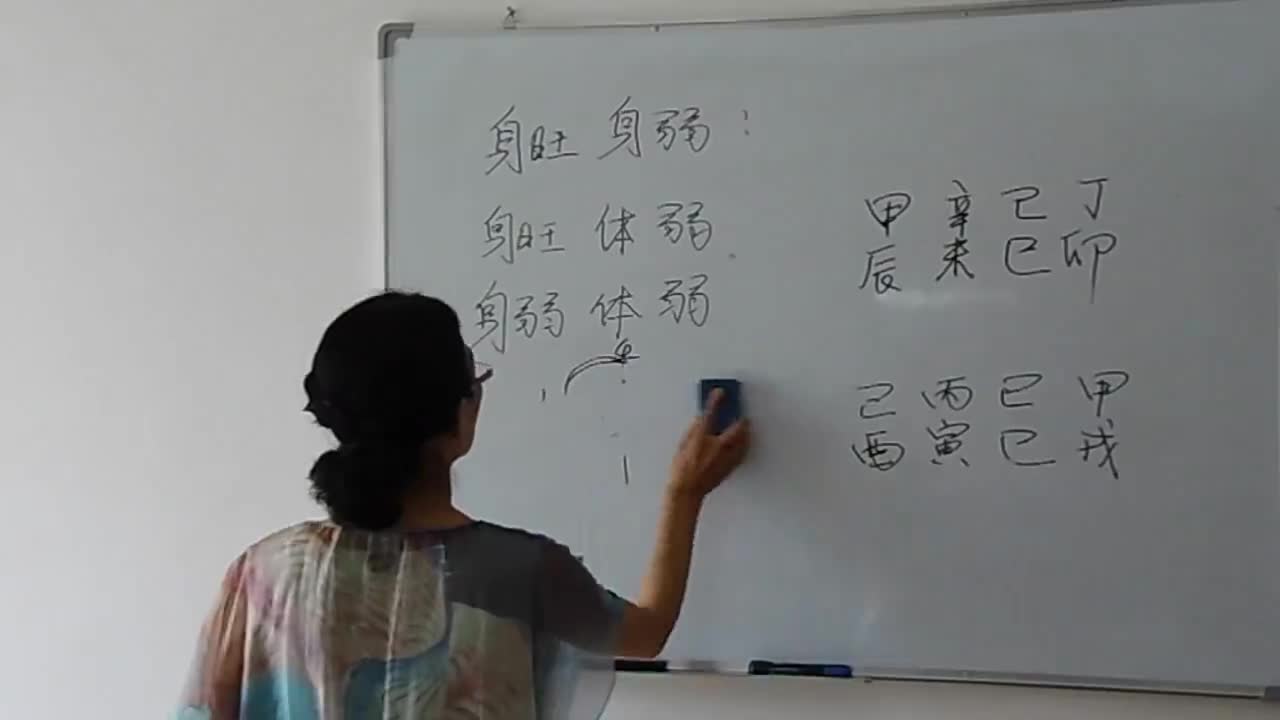 身旺 身弱：
身旺 体弱
身弱 体弱
甲 辛 己 丁
辰 未 巳 卯
己 丙 己 甲
酉 寅 巳 戌